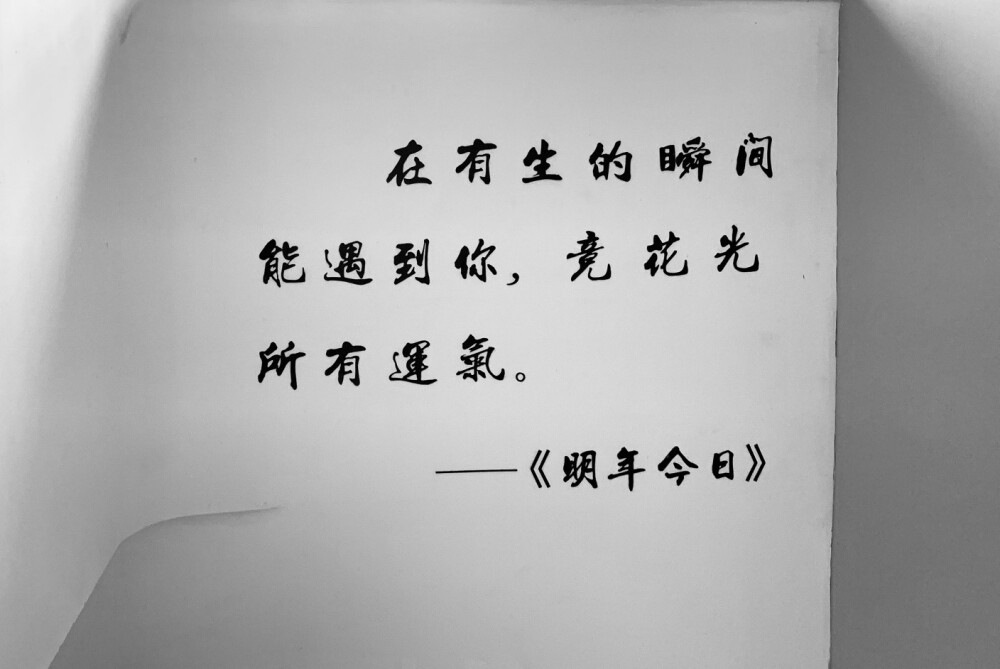 在有生的瞬间
能遇到你,竟花光
所有運氣。
——《明年今日》